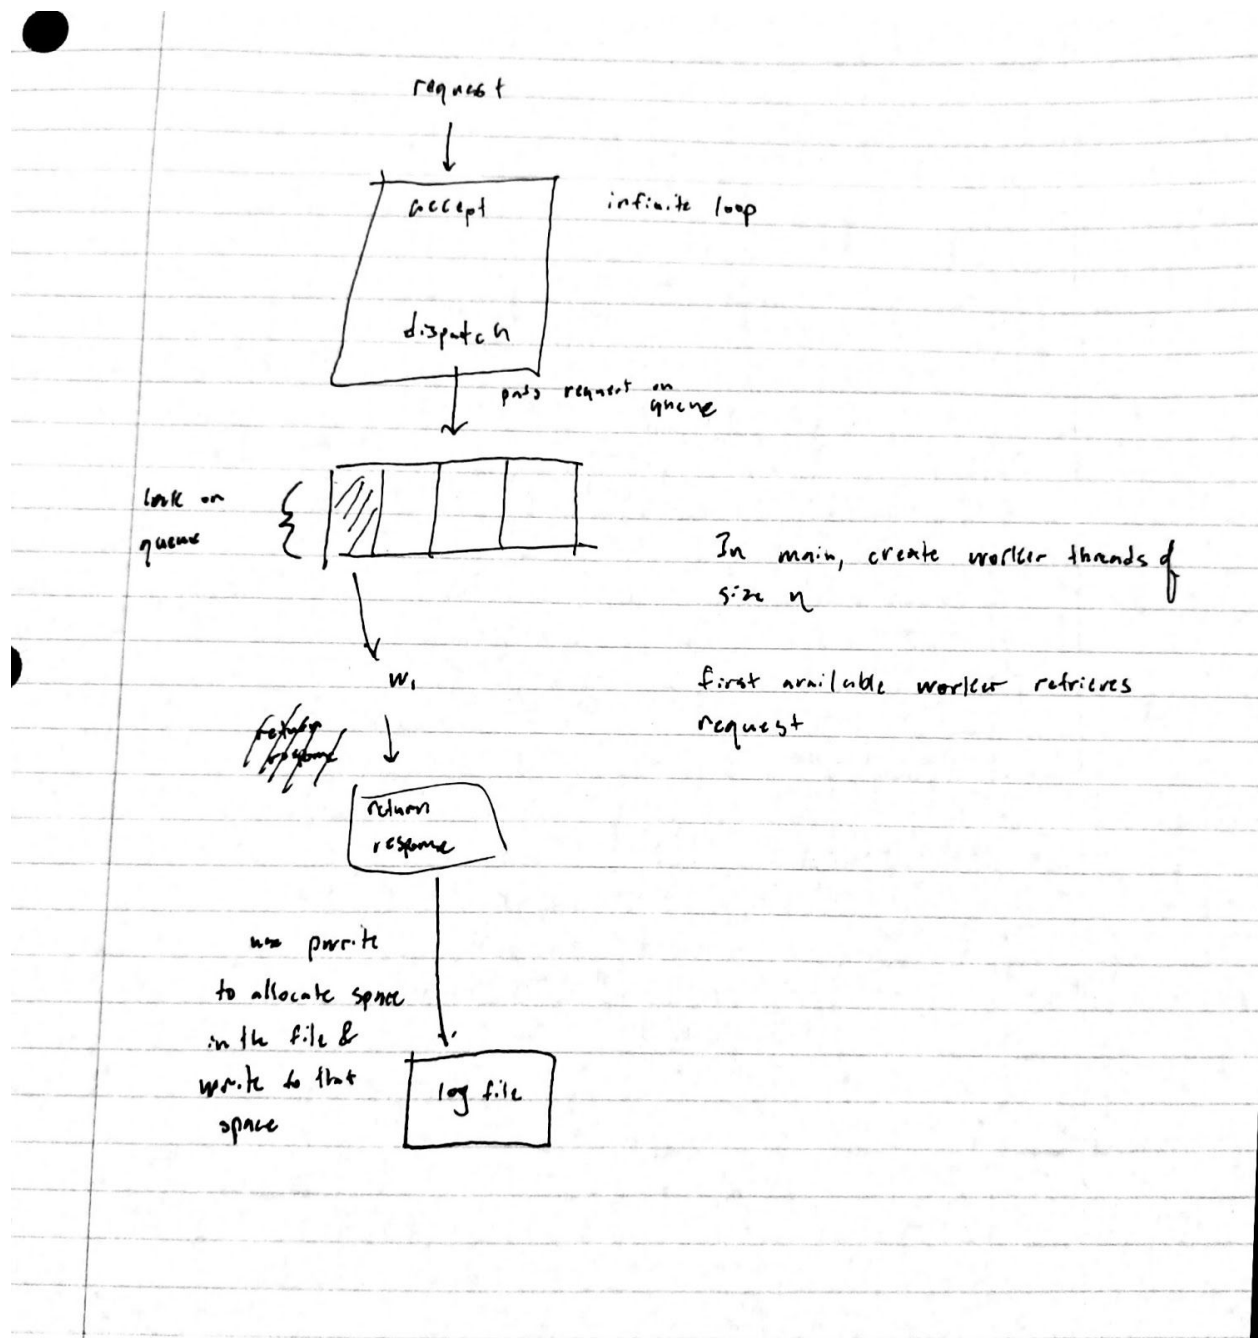 request
accept
infinite loop
dispatch
pass request on
queue
lock on
queue
In main, create worker threads of
size n
W1
first available worker retrieves
request
return
response
return
response
use pwrite
to allocate space
in the file &
write to that
space
log file